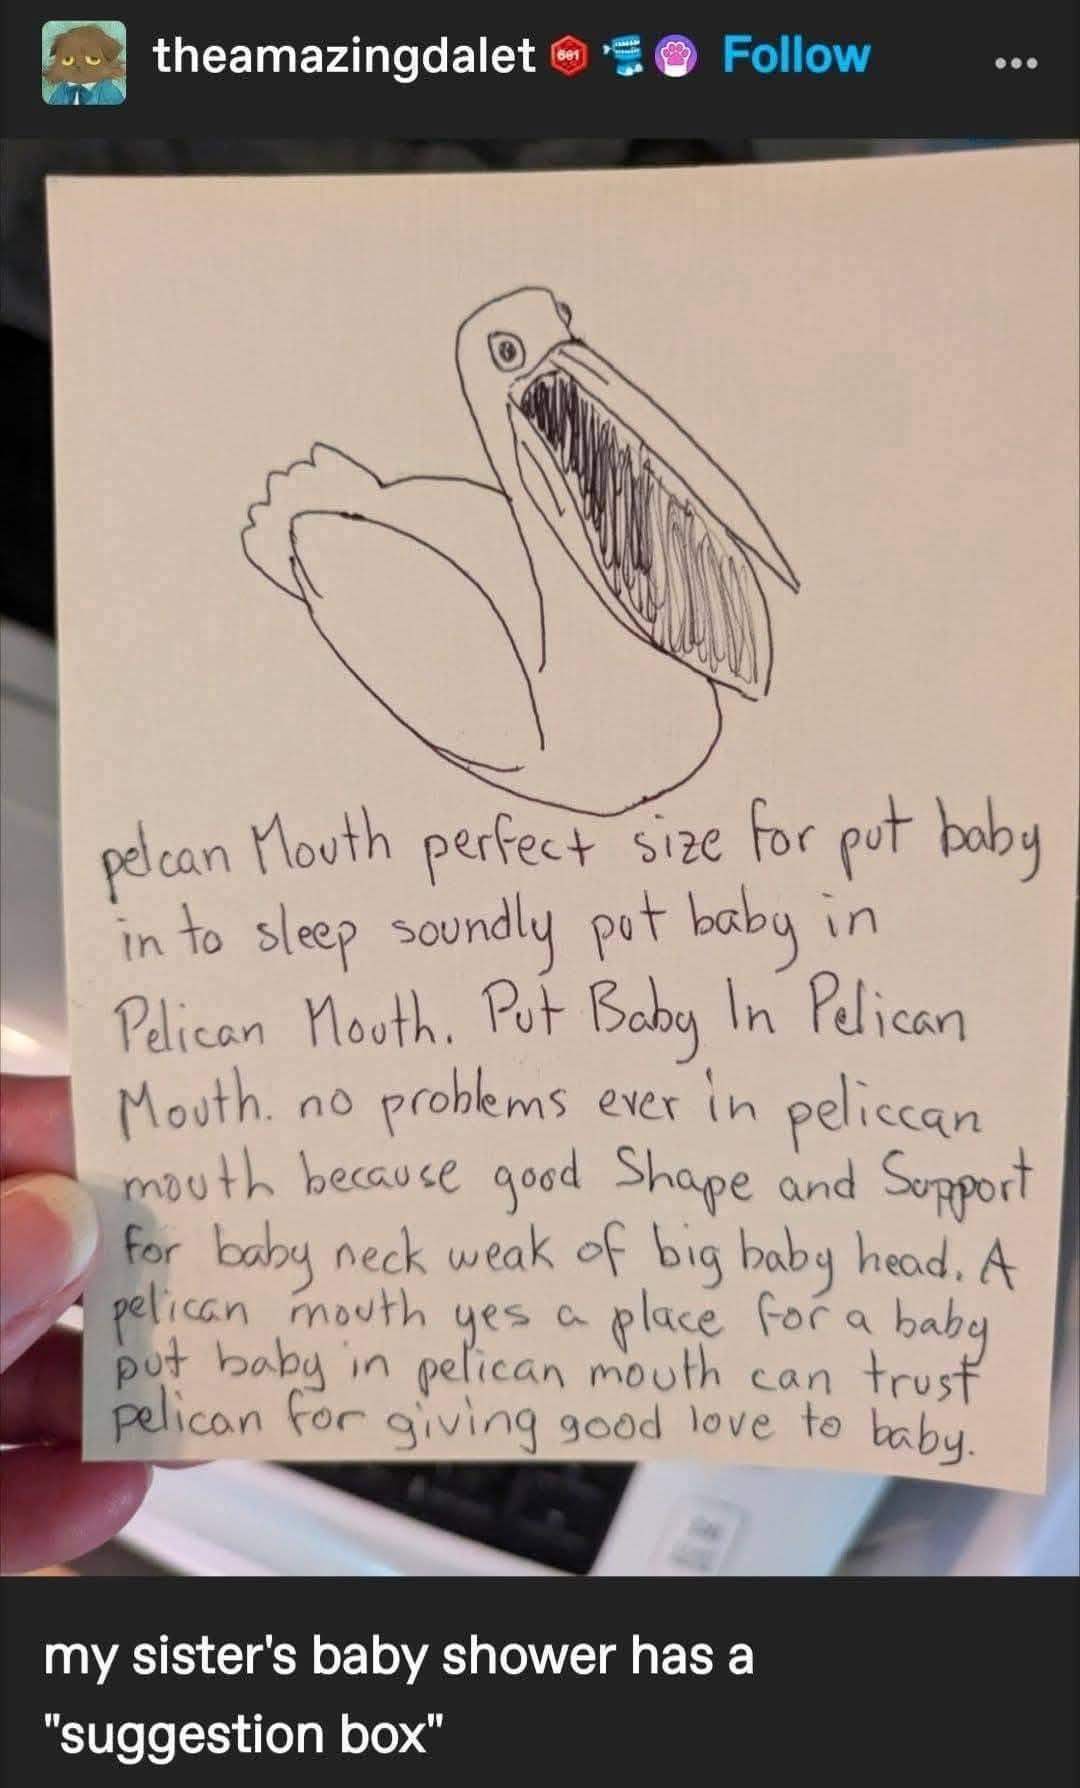 theamazingdalet 661 Follow
pelcan Mouth perfect size for put baby
in to sleep soundly put baby in
Pelican Mouth. Put Baby In Pelican
Mouth. no problems ever in peliccan
mouth because good Shape and Support
for baby neck weak of big baby head. A
pelican mouth yes a place for a baby
put baby in pelican mouth can trust
pelican for giving good love to baby.
my sister's baby shower has a
"suggestion box"